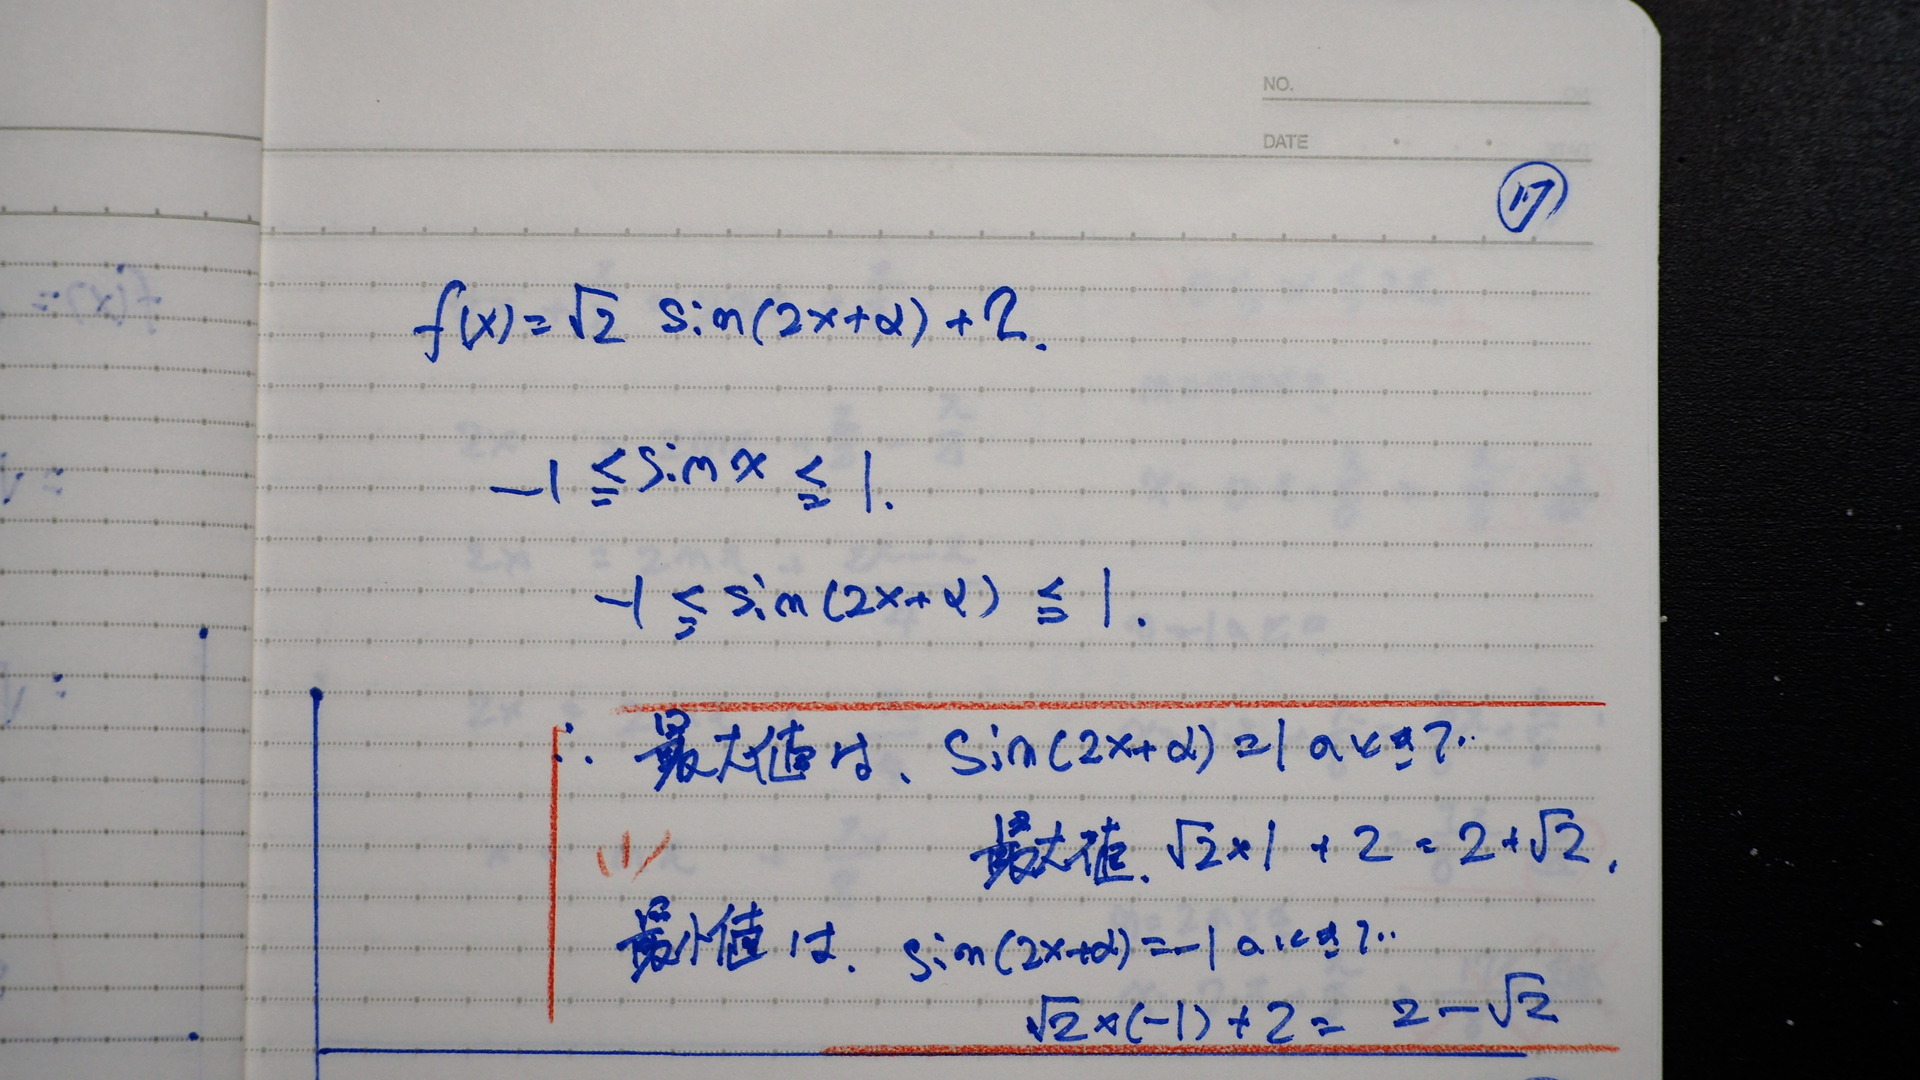 NO.
DATE
⑰
f(x)=√2 sin(2x+α)+2.
-1≦sinx≦1.
-1≦sin(2x+α)≦1.
∴ 最大値は、sin(2x+α)=1のときで..
最大値、√2×1+2=2+√2.
最小値は、sin(2x+α)=-1のときで..
√2×(-1)+2= 2-√2